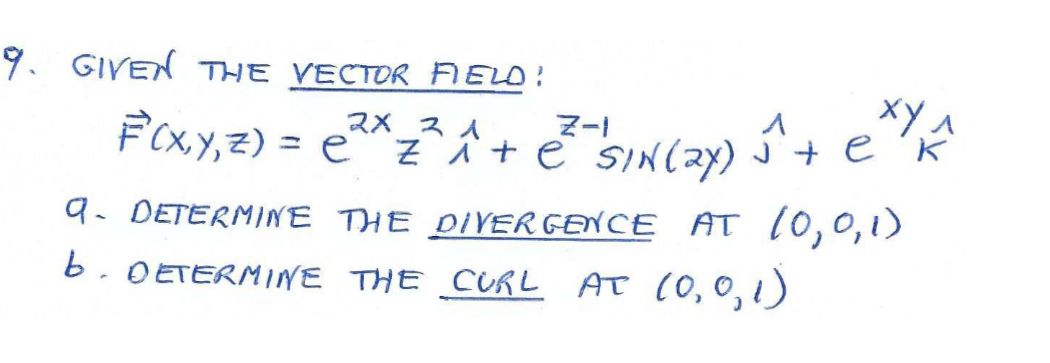 9. GIVEN THE VECTOR FIELD:
F⃗(x,y,z) = e^{2x} z² î + e^{z-1} SIN(2y) ĵ + e^{xy} k̂
a. DETERMINE THE DIVERGENCE AT (0,0,1)
b. DETERMINE THE CURL AT (0,0,1)